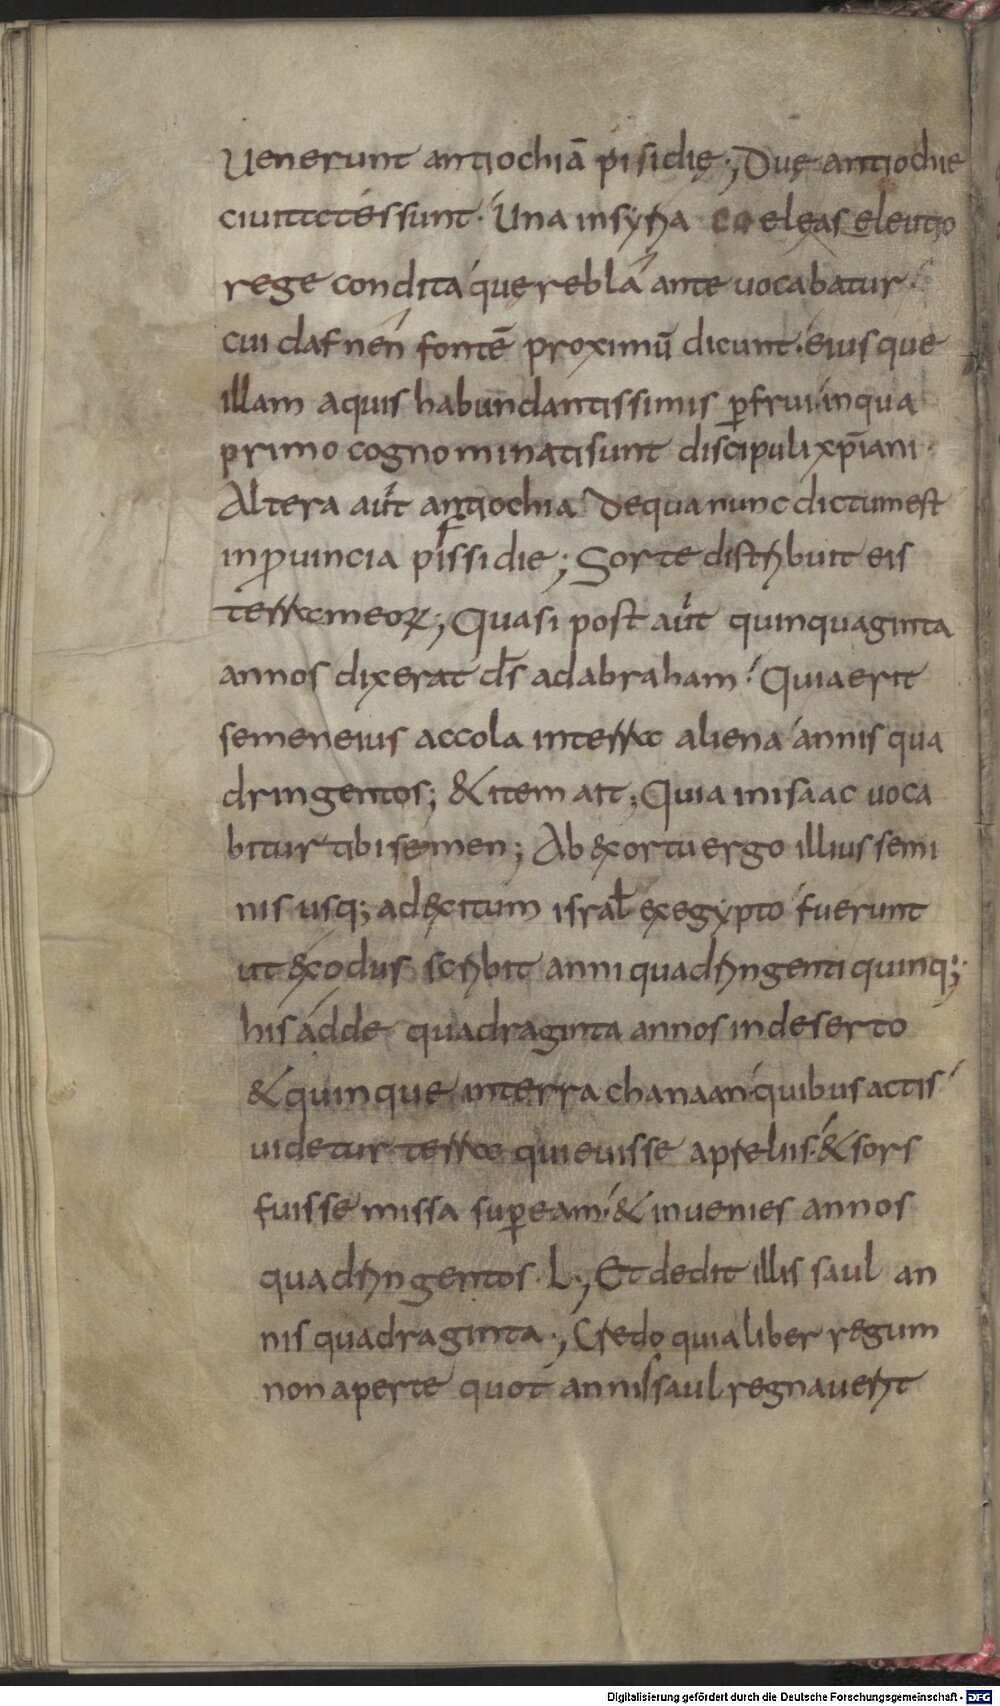 Uenerunt antiochiā pisidię ; Duę antiochie
ciuitates sunt · Una in syria co eleas eleutio
rege condita quę reblá ante uocabatur ·
cui dafnen fontē proximū dicunt · eiusque
illam aquis habundantissimis ꝑfrui · in qua
primo cognominati sunt discipuli xp̄iani ·
Altera aūt antiochia de qua nunc dictum est
in ꝓuincia pissidie ; Sorte distribuit eis
terram eoꝝ ; Quasi post aūt quinquaginta
annos dixerat d̄s ad abraham · Quia erit
semen eius accola in terra aliena annis qua
dringentos ; & item ait ; Quia in isaac uoca
bitur tibi semen ; Ab exortu ergo illius semi
nis usq; ad exitum isral̄ ex egypto fuerunt
ut exodus scribit anni quadringenti quinq; ·
his adde quadraginta annos in deserto
& quinque in terra chanaan quibus actis
uidetur terra quieuisse a preliis · & sors
fuisse missa suꝑ eam · & inuenies annos
quadringentos · L · ; Et dedit illis saul an
nis quadraginta · ; Credo quia liber regum
non aperte quot annis saul regnauerit
Digitalisierung gefördert durch die Deutsche Forschungsgemeinschaft - DFG